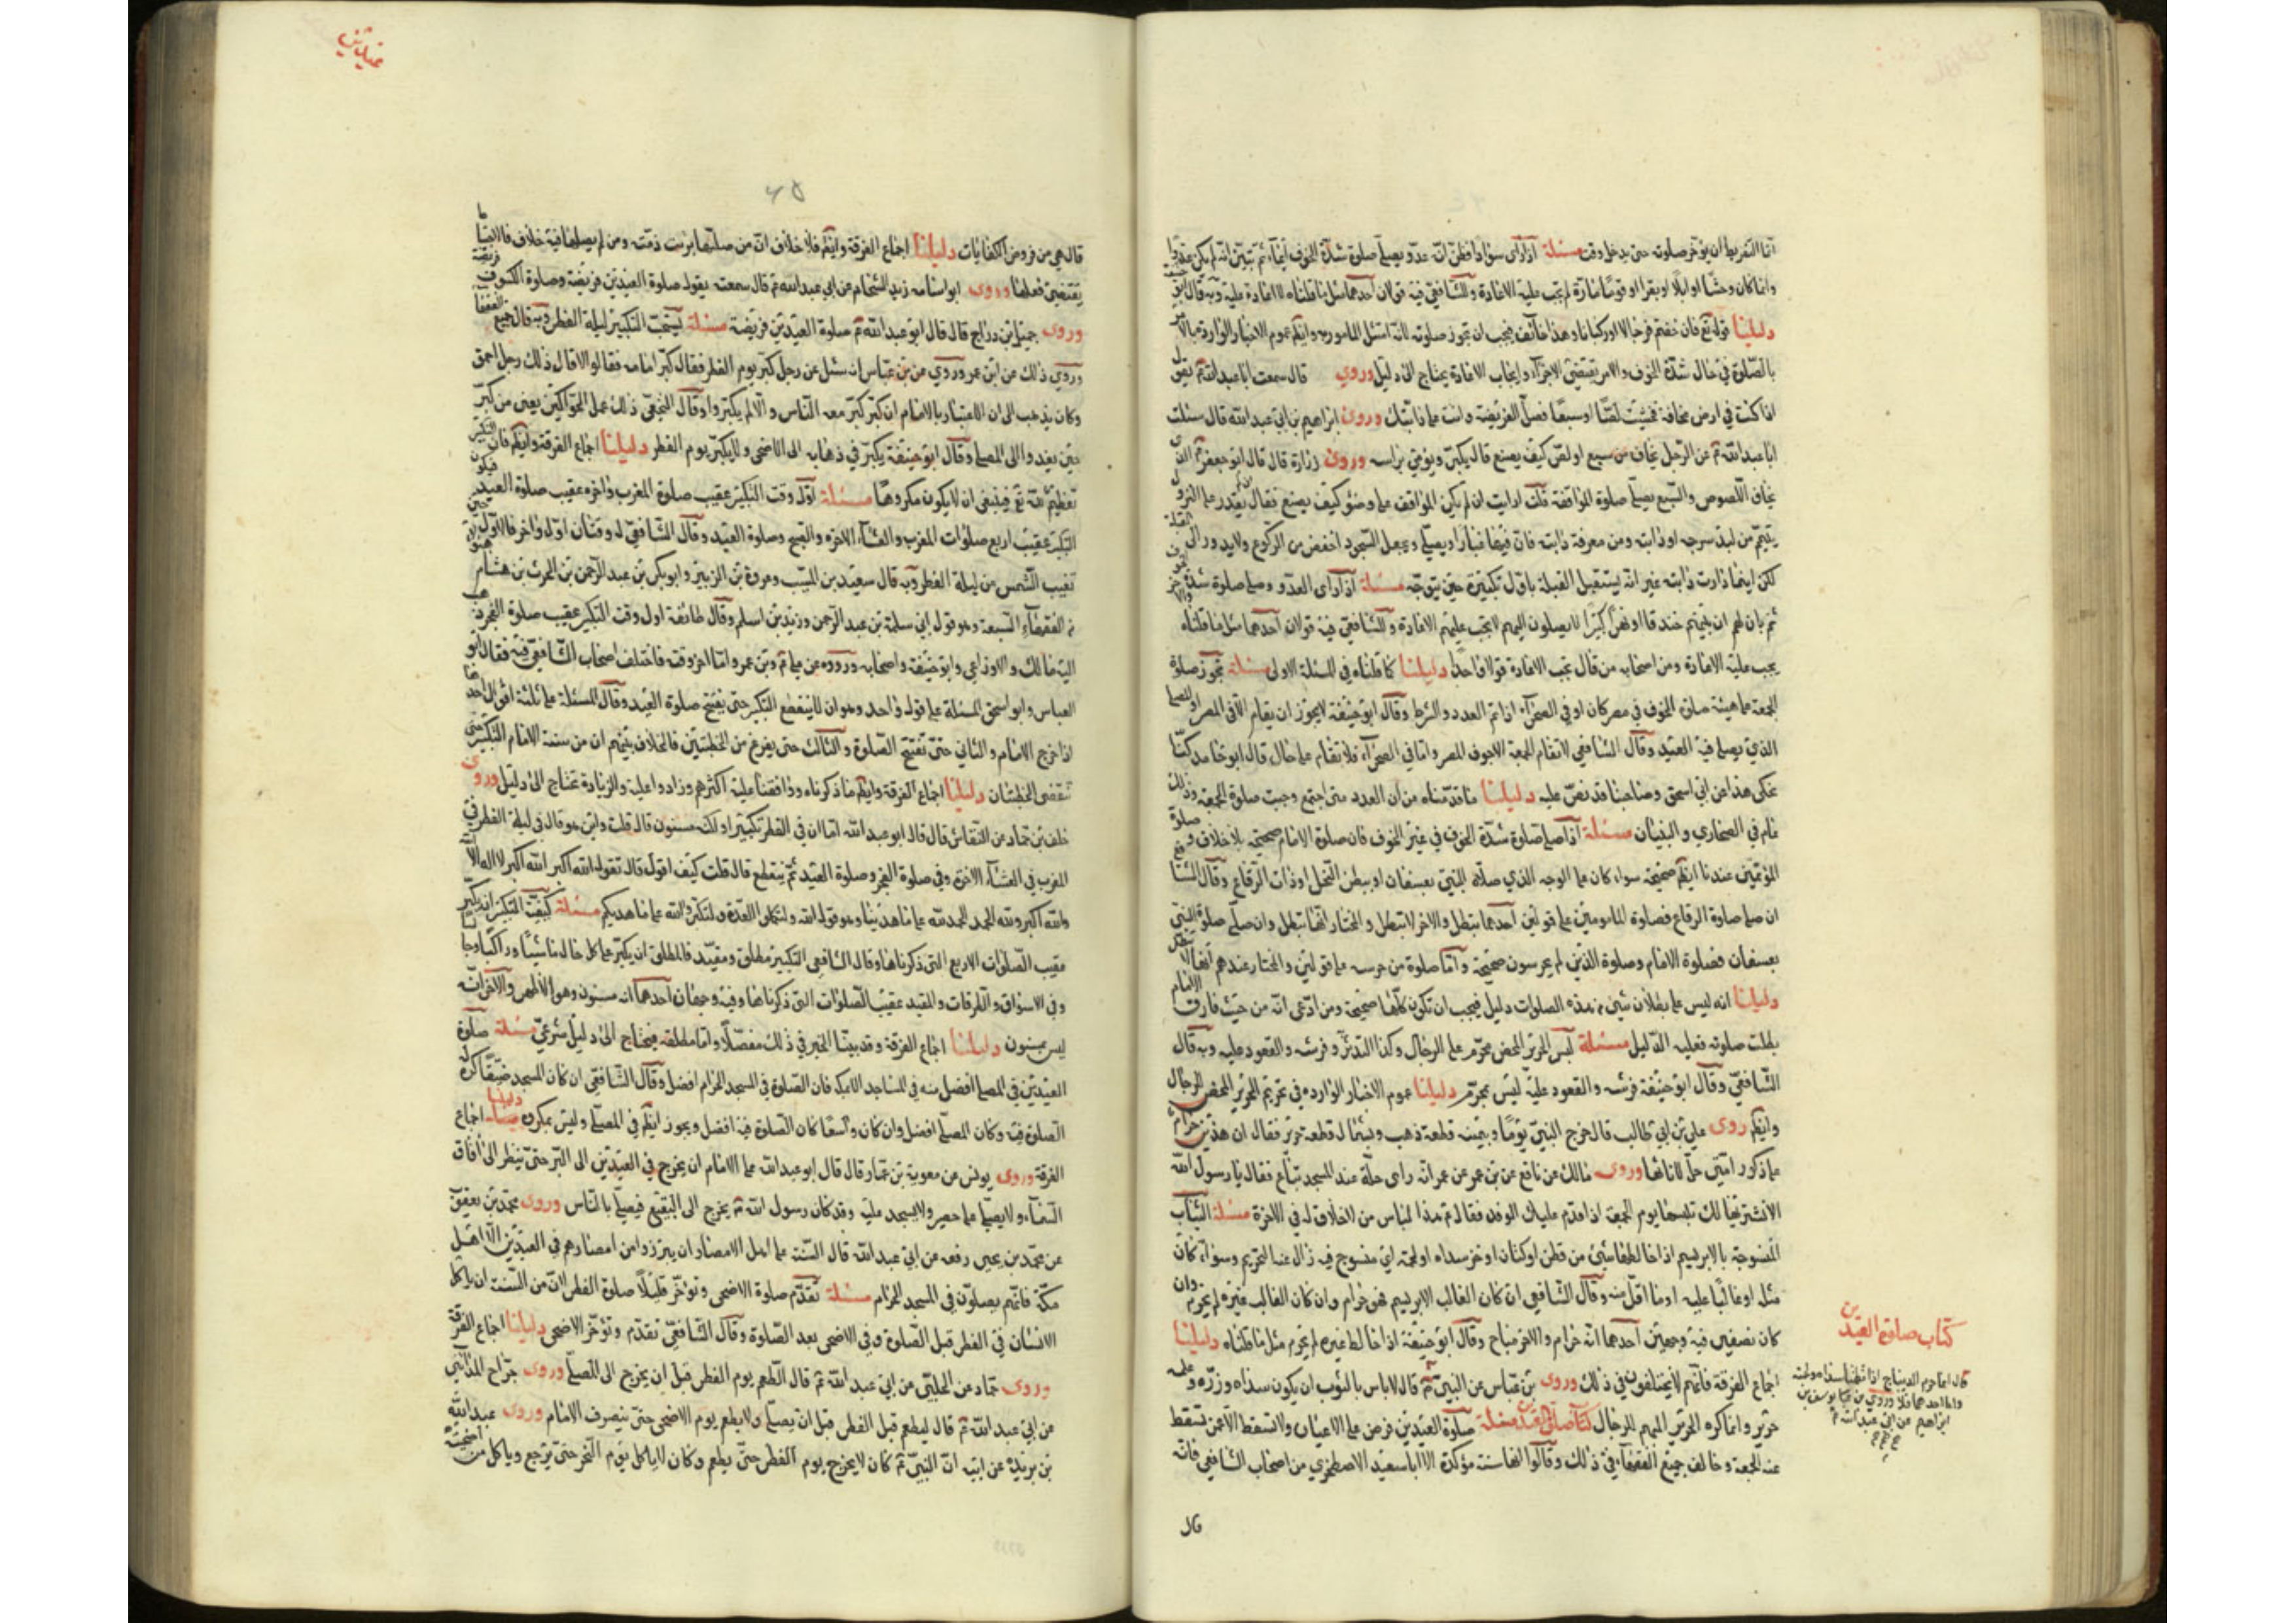 انما التفريط ان يؤخر صلوته حتى يدخل وقت مسئلة اذا رأى سوادا فظن انه عدو يصلى صلوة شدة الخوف ايماء ثم تبين انه لم يكن عدوا
وانما كان وحشا او ابلا او بقرا او قوما مارة لم يجب عليه الاعادة وللشافعي فيه قولان احدهما مثل ما قلناه لا اعادة عليه وبه قال ابو حنيفة
دليلنا قوله تع فان خفتم فرجالا او ركبانا وهذا خائف فيجب ان تجوز صلوته لانه امتثل المأمور به وايضم عموم الاخبار الواردة
بالصلوة في حال شدة الخوف والامر يقتضي الاجزاء وايجاب الاعادة يحتاج الى دليل وروي قال سمعت ابا عبد الله ع يقول
اذا كنت في ارض مخافة فخشيت لصا او سبعا فصل الفريضة وانت على دابتك وروى ابراهيم بن ابي عبد الله قال سئلت
ابا عبد الله ع عن الرجل يخاف من سبع او لص كيف يصنع قال يكبر ويومي براسه وروى زرارة قال قال ابو جعفر ع الذي
يخاف اللصوص والسبع يصلي صلوة المواقفة قلت ارايت ان لم يكن المواقف على وضوء كيف يصنع فقال يقدر على النزول
يتيمم من لبد سرجه او دابته ومن معرفة دابته فان فيها غبارا ويصلي ويجعل السجود اخفض من الركوع ولا يدور الى القبلة
لكن اينما دارت دابته غير انه يستقبل القبلة باول تكبيرة حين يتوجه مسئلة اذا رأى العدو وصلى صلوة شدة الخوف
ثم بان لهم ان بينهم خندقا او نهرا كبيرا لا يصلون اليهم لا يجب عليهم الاعادة وللشافعي فيه قولان احدهما مثل ما قلناه والاخر
يجب عليه الاعادة ومن اصحابه من قال يجب الاعادة قولا واحدا دليلنا ما قلناه في المسئلة الاولى مسئلة تجوز صلوة
الجمعة على هيئة صلوة الخوف في مصر كان او في الصحراء اذا تم العدد والشرط وقال ابو حنيفة لا يجوز ان يقام الا في المصر او المصلى
الذي يصلى فيه العيد وقال الشافعي لا تقام الجمعة الا جوف المصر واما في الصحراء فلا تقام على حال قال ابو حامد كنا
نحكى هذا عن ابي اسحق وصاحبنا قد نص عليه دليلنا ما قدمناه من ان العدد متى اجتمع وجبت صلوة الجمعة وذلك
عام في الصحاري والبنيان مسئلة اذا صلى صلوة شدة الخوف في غير الخوف فان صلوة الامام صحيحة بلا خلاف و صلوة
المؤتمين عندنا ايضم صحيحة سواء كان على الوجه الذي صلاه النبي بعسفان او ببطن النخل او ذات الرقاع وقال الشافعي
ان صلى صلوة الرقاع فصلوة المأمومين على قولين احدهما تبطل والاخر لا تبطل والمختار انها تبطل وان صلى صلوة النبي
بعسفان فصلوة الامام وصلوة الذين لم يحرسون صحيحة واما صلوة من حرسه على قولين والمختار عندهم انها لا تبطل
دليلنا انه ليس على بطلان شئ من هذه الصلوات دليل فيجب ان تكون كلها صحيحة ومن ادعى انه من حيث فارق الامام
بطلت صلوته فعليه الدليل مسئلة لبس الحرير المحض محرم على الرجال وكذا التدثر وفرشه والقعود عليه وبه قال
الشافعي وقال ابو حنيفة فرشه والقعود عليه ليس بمحرم دليلنا عموم الاخبار الواردة في تحريم الحرير المحض للرجال
وايضم روى علي بن ابي طالب قال خرج النبي يوما وبيمينه قطعة ذهب وبشماله قطعة حرير فقال ان هذين حرام
على ذكور امتي حل لاناثها وروى مالك عن نافع عن بن عمر عن عمر انه راى حلة عند المسجد تباع فقال يا رسول الله
الا نشتريها لك تلبسها يوم الجمعة اذا قدم عليك الوفد فقال ع هذا لباس من لا خلاق له في الاخرة مسئلة الثياب
المنسوجة بالابريسم اذا خالطها شئ من قطن او كتان او خز سداه او لحمه اي منسوج فيه زال عنها التحريم وسواء كان
مثله او غالبا عليه او ما اقل منه وقال الشافعي ان كان الغالب الابريسم فهو حرام وان كان الغالب غيره لم يحرم وان
كان نصفين فيه وجهين احدهما انه حرام والاخر مباح وقال ابو حنيفة اذا خالطه غيره لم يحرم مثل ما قلناه دليلنا
اجماع الفرقة فانهم لا يختلفون في ذلك وروى بن عباس عن النبي ع قال لا باس بالثوب ان يكون سداه وزره وعلمه
حرير وانما كره الحرير المبهم للرجال كتاب صلوة العيدين مسئلة صلوة العيدين فرض على الاعيان ولا تسقط الا عمن تسقط
عنه الجمعة وخالف جميع الفقهاء في ذلك وقالوا انها سنة مؤكدة الا ابا سعيد الاصطخري من اصحاب الشافعي فانه
قال
كتاب صلوة العيدين
ابراهيم عن ابي عبد الله ع
٦٥
قال هي من فروض الكفايات دليلنا اجماع الفرقة وايضم فلا خلاف ان من صلاها برئت ذمته ومن لم يصلها فيه خلاف فالاحتياط
يقتضي فعلها وروى ابو اسامة زيد الشحام عن ابي عبد الله ع قال سمعت يقول صلوة العيدين فريضة وصلوة الكسوف فريضة
وروى جميل بن دراج قال قال ابو عبد الله ع صلوة العيدين فريضة مسئلة يستحب التكبير ليلة الفطر وبه قال جميع الفقهاء
وروي ذلك عن ابن عمر وروي عن بن عباس انه سئل عن رجل كبر يوم الفطر فقال كبر امامه فقالوا لا قال ذلك رجل احمق
وكان يذهب الى ان الاعتبار بالامام ان كبر كبر معه الناس والا لم يكبروا وقال النخعي ذلك عمل الحواكين يعني من كبر
حين يغدوا الى المصلى وقال ابو حنيفة يكبر في ذهابه الى الاضحى ولا يكبر يوم الفطر دليلنا اجماع الفرقة وايضم فان التكبير
تعظيم لله تع فينبغي ان لا يكون مكروها مسئلة اول وقت التكبير عقيب صلوة المغرب واخره عقيب صلوة العيد فيكون
التكبير عقيب اربع صلوات المغرب والعشاء الاخرة والصبح وصلوة العيد وقال الشافعي له وقتان اول واخر فالاول حين
تغيب الشمس من ليلة الفطر وبه قال سعيد بن المسيب وعروة بن الزبير وابو بكر بن عبد الرحمن بن الحرث بن هشام
من الفقهاء السبعة وهو قول ابي سلمة بن عبد الرحمن وزيد بن اسلم وقال طائفة اول وقت التكبير عقيب صلوة الفجر ذهب
اليه مالك والاوزاعي وابو حنيفة واصحابه ورووه عن علي ع وبن عمر واما اخر وقته فاختلف اصحاب الشافعي فيه فقال ابو
العباس وابو اسحق المسئلة على قول واحد وهو ان لا ينقطع التكبير حتى يفتتح صلوة العيد وقال المسئلة على ثلثة اقوال احدها
اذا خرج الامام والثاني حتى تفتتح الصلوة والثالث حتى يفرغ من الخطبتين فالخلاف بينهم ان من سنة الامام التكبير حتى
تنقضى الخطبتان دليلنا اجماع الفرقة وايضم ما ذكرناه ووافقنا عليه اكثرهم وزادوا عليه والزيادة تحتاج الى دليل وروى
خلف بن حماد عن النقاش قال قال ابو عبد الله اما ان في الفطر تكبيرا ولكنه مسنون قال قلت واين هو قال في ليلة الفطر في
المغرب في العشاء الاخرة وفي صلوة الفجر وصلوة العيد ثم ينقطع قال قلت كيف اقول قال تقول الله اكبر الله اكبر لا اله الا الله
والله اكبر ولله الحمد الحمد لله على ما هدينا وهو قول الله ولتكملوا العدة ولتكبروا الله على ما هديكم مسئلة كيفية التكبير ان يكبر
عقيب الصلوات الاربع التي ذكرناها وقال الشافعي التكبير مطلق ومقيد فالمطلق ان يكبر على كل حال ماشيا وراكبا وجالسا
وفي الاسواق والطرقات والمقيد عقيب الصلوات التي ذكرناها وفيه وجهان احدهما انه مسنون وهو الاظهر والاخر انه
ليس بمسنون دليلنا اجماع الفرقة وقد بينا الخبر في ذلك مفصلا واما مطلقه فيحتاج الى دليل شرعي مسئلة صلوة
العيدين في المصلى افضل منه في المساجد الا بمكة فان الصلوة في المسجد الحرام افضل وقال الشافعي ان كان المسجد ضيقا كره له
الصلوة فيه وكان المصلى افضل وان كان واسعا كان الصلوة فيه افضل ويجوز ايضم في المصلى وليس بمكروه دليلنا اجماع
الفرقة وروى يونس عن معوية بن عمار قال قال ابو عبد الله على الامام ان يخرج في العيدين الى البر حتى ينظر الى آفاق
السماء ولا يصلي على حصير ولا يسجد عليه وقد كان رسول الله ع يخرج الى البقيع فيصلي بالناس وروى محمد بن يعقوب
عن محمد بن يحيى رفعه عن ابي عبد الله قال السنة على اهل الامصار ان يبرزوا من امصارهم في العيدين الا اهل
مكة فانهم يصلون في المسجد الحرام مسئلة تقدم صلوة الاضحى وتؤخر قليلا صلوة الفطر لان من السنة ان ياكل
الانسان في الفطر قبل الصلوة وفي الاضحى بعد الصلوة وقال الشافعي تقدم وتؤخر الاضحى دليلنا اجماع الفرقة
وروى حماد عن الحلبي عن ابي عبد الله ع قال اطعم يوم الفطر قبل ان يخرج الى المصلى وروى جراح المدائني
عن ابي عبد الله ع قال ليطعم قبل الفطر قبل ان يصلي ولا يطعم يوم الاضحى حتى ينصرف الامام وروى عبد الله
بن بريدة عن ابيه ان النبي ع كان لا يخرج يوم الفطر حتى يطعم وكان لا ياكل يوم النحر حتى يرجع وياكل من اضحيته